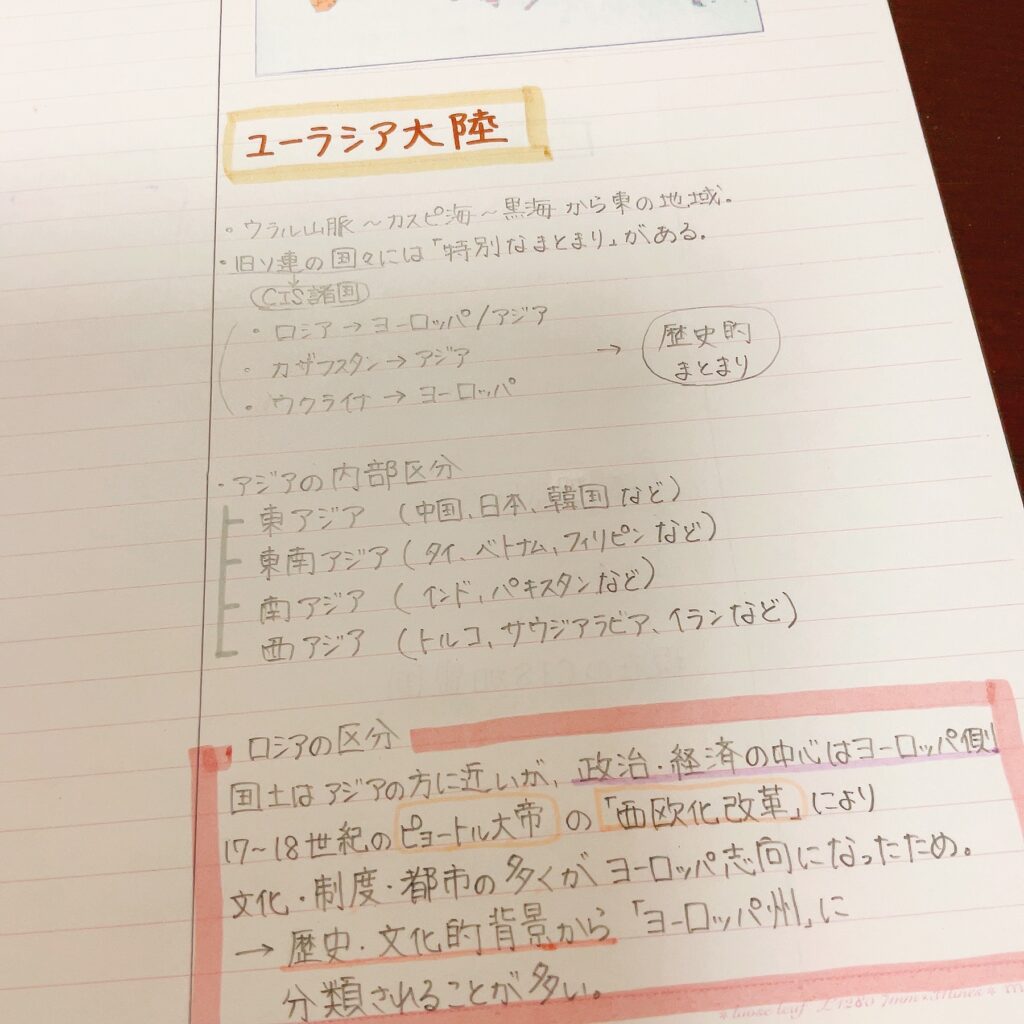 ユーラシア大陸
・ウラル山脈〜カスピ海〜黒海から東の地域.
・旧ソ連の国々には「特別なまとまり」がある.
CIS諸国
・ロシア→ヨーロッパ/アジア
・カザフスタン→アジア
・ウクライナ→ヨーロッパ
→ 歴史的
まとまり
・アジアの内部区分
東アジア (中国、日本、韓国など)
東南アジア (タイ、ベトナム、フィリピンなど)
南アジア (インド、パキスタンなど)
西アジア (トルコ、サウジアラビア、イランなど)
ロシアの区分
国土はアジアの方に近いが、政治・経済の中心はヨーロッパ側
17~18世紀のピョートル大帝の「西欧化改革」により
文化・制度・都市の多くがヨーロッパ志向になったため。
→ 歴史・文化的背景から「ヨーロッパ州」に
分類されることが多い。
loose leaf